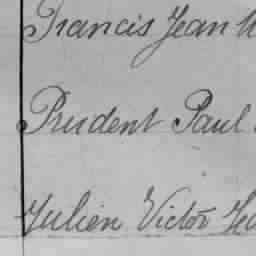 Francis Jean
Prudent Paul
Julien Victor